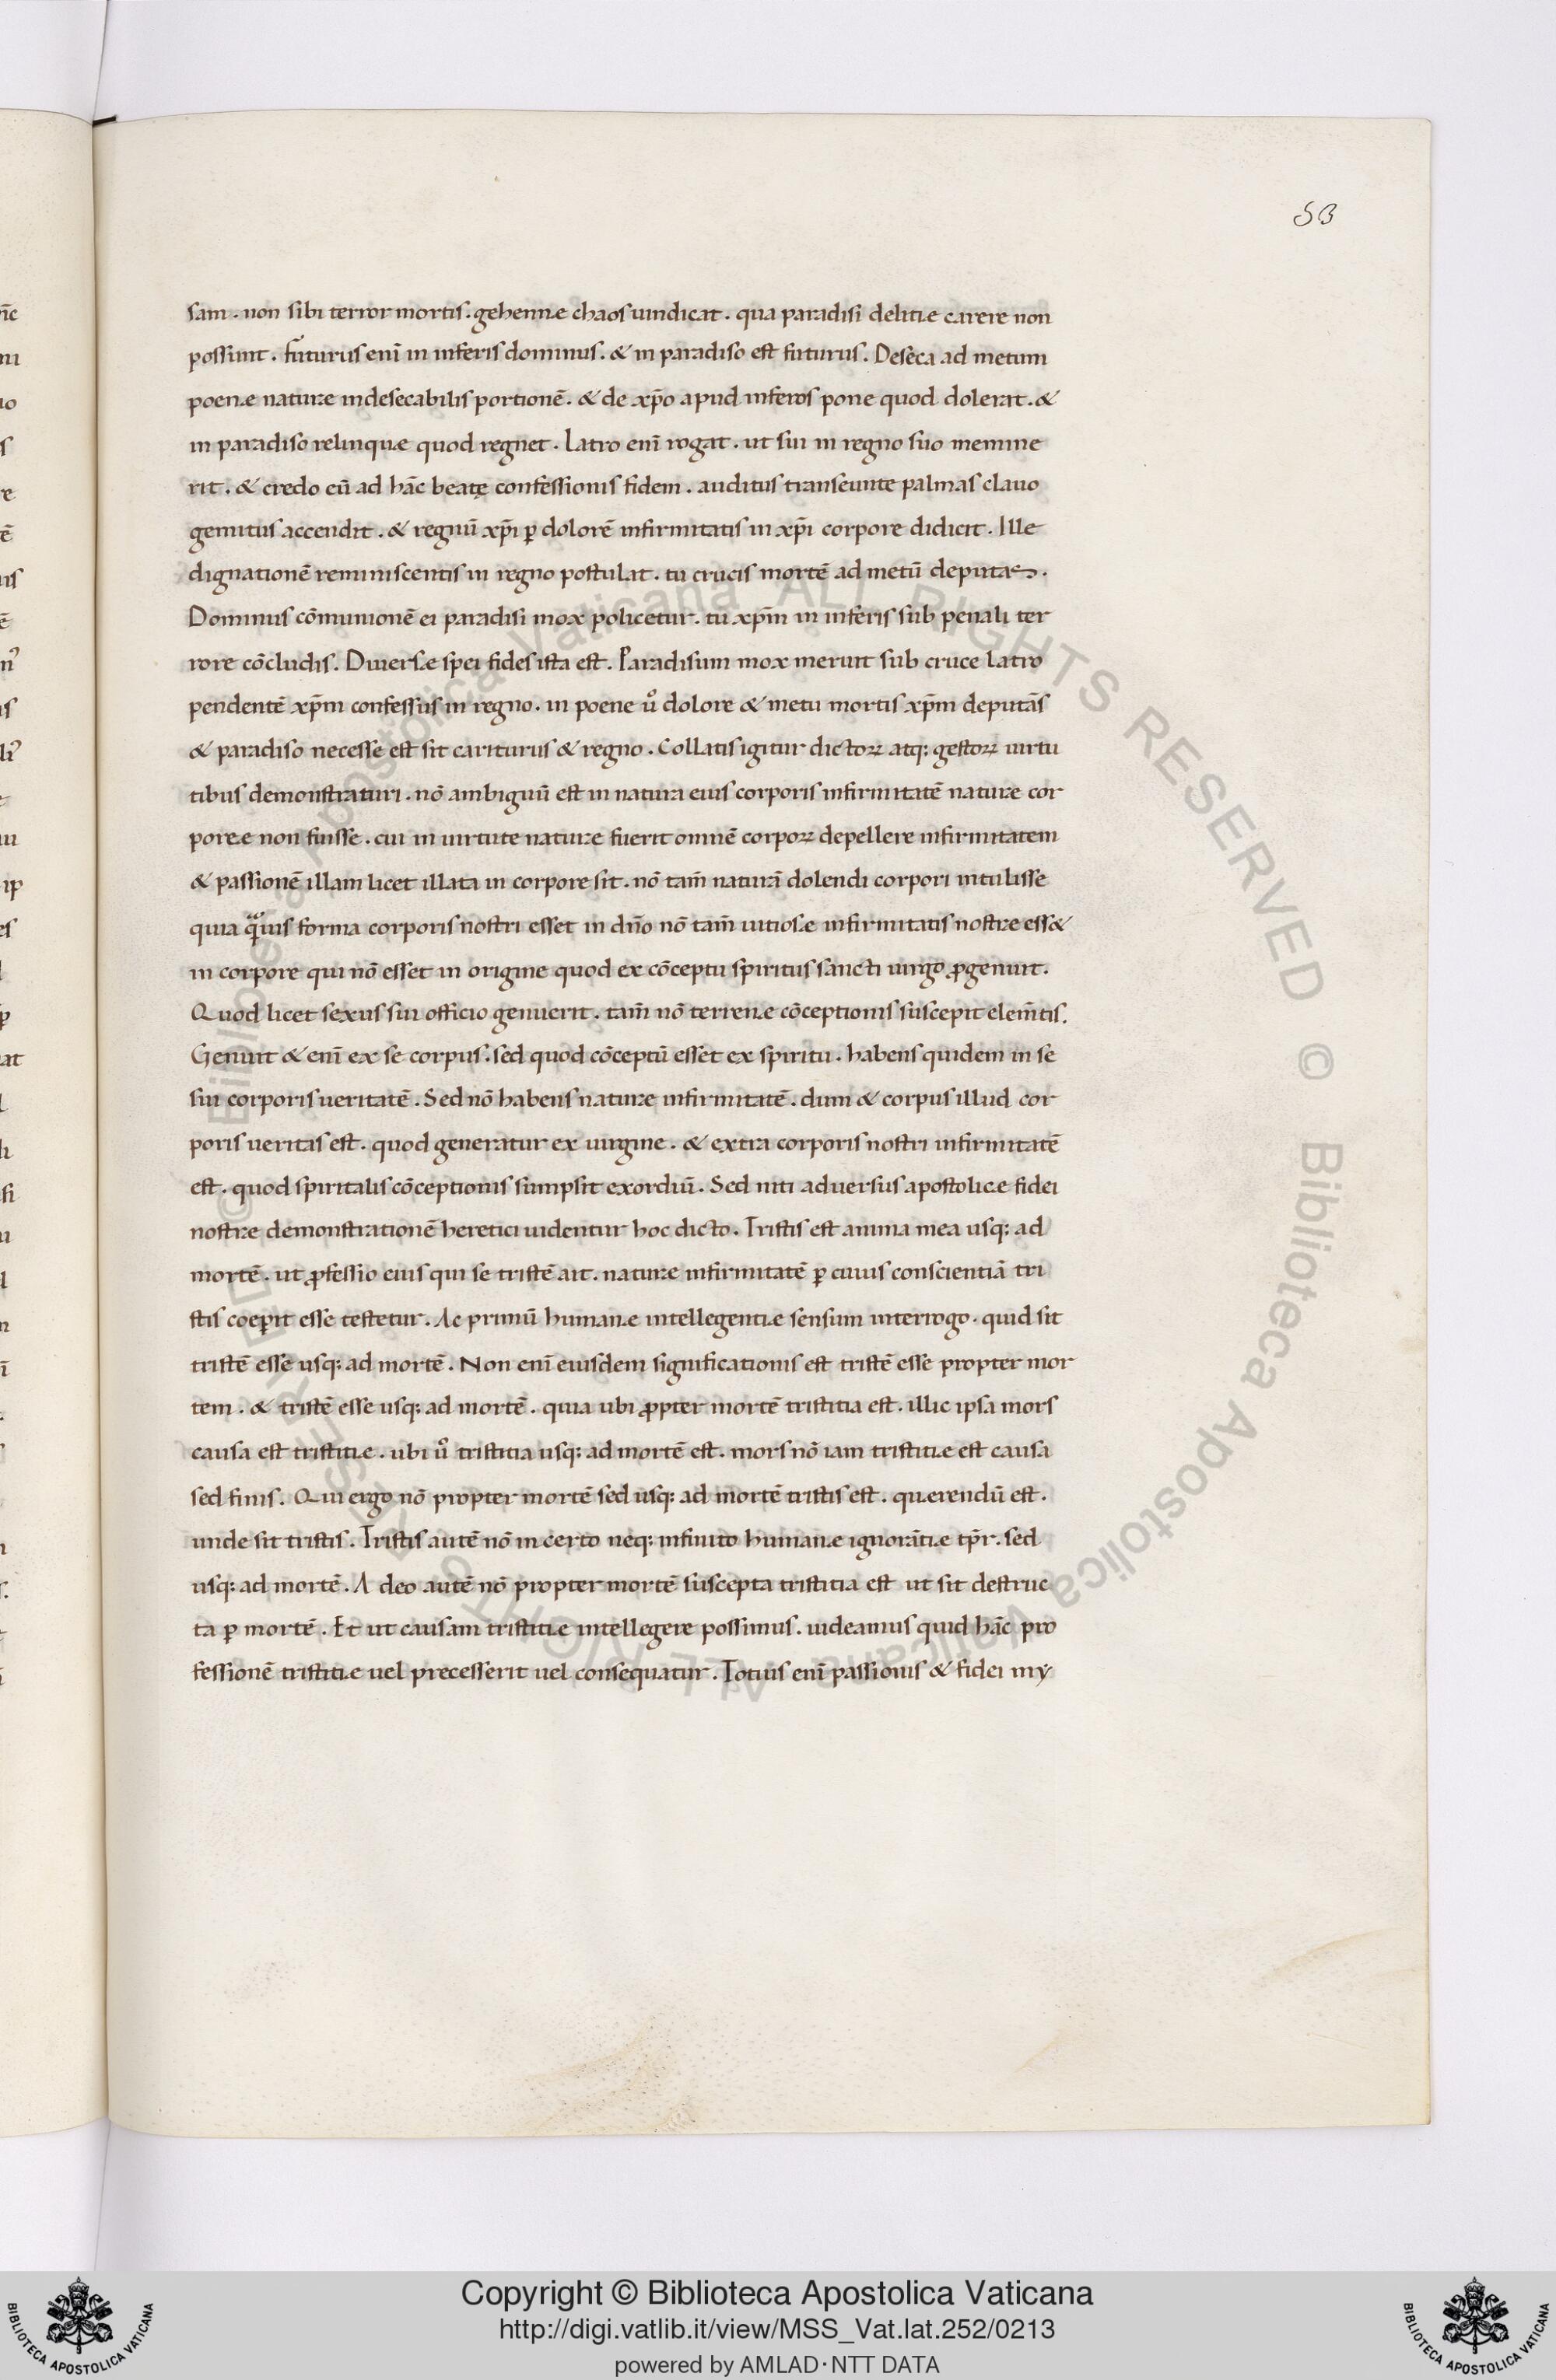 53
sam . non sibi terror mortis . gehennæ chaos uindicat . qua paradisi delitiæ carere non
possunt . Futurus eni̅ in inferis dominus . & in paradiso est futurus . Deseca ad metum
poenæ naturæ indesecabilis portione̅ . & de xp̅o apud inferos pone quod dolerat . &
in paradiso relinquæ quod regnet . Latro eni̅ rogat . ut sui in regno suo memine
rit . & credo eu̅ ad ha̅c beatę confessionis fidem . auditus transeunte palmas clauo
gemitus accendit . & regnu̅ xp̅i ꝑ dolore̅ infirmitatis in xp̅i corpore didicit . Ille
dignatione̅ reminiscentis in regno postulat . tu crucis morte̅ ad metu̅ deputas .
Dominus co̅munione̅ ei paradisi mox policetur . tu xp̅m in inferis sub penali ter
rore co̅cludis . Diuersæ spei fides ista est . Paradisum mox meruit sub cruce latro
pendente̅ xp̅m confessus in regno . in poene uͦ dolore & metu mortis xp̅m deputa̅s
& paradiso necesse est sit cariturus & regno . Collatis igitur dictoꝝ atq: gestoꝝ uirtu
tibus demonstraturi . no̅ ambiguu̅ est in natura eius corporis infirmitate̅ naturæ cor
poreæ non fuisse . cui in uirtute naturæ fuerit omne̅ corpoꝝ depellere infirmitatem
& passione̅ illam licet illata in corpore sit . no̅ tam̅ natura̅ dolendi corpori intulisse
quia qͣ̅uis forma corporis nostri esset in dn̅o no̅ tam̅ uitiosæ infirmitatis nostræ ess&
in corpore qui no̅ esset in origine quod ex co̅ceptu spiritus sancti uirgo ꝓgenuit .
Quod licet sexus sui officio genuerit . tam̅ no̅ terrenæ co̅ceptionis suscepit elem̅tis .
Genuit & eni̅ ex se corpus . sed quod co̅ceptu̅ esset ex spiritu . habens quidem in se
sui corporis ueritate̅ . Sed no̅ habens naturæ infirmitate̅ . dum & corpus illud cor
poris ueritas est . quod generatur ex uirgine . & extra corporis nostri infirmitate̅
est . quod spiritalis co̅ceptionis sumpsit exordiu̅ . Sed niti aduersus apostolicæ fidei
nostræ demonstratione̅ heretici uidentur hoc dicto . Tristis est anima mea usq: ad
morte̅ . ut ꝓfessio eius qui se triste̅ ait . naturæ infirmitate̅ ꝑ cuius conscientia̅ tri
stis coeperit esse testetur . Ac primu̅ humanæ intellegentiæ sensum interrogo . quid sit
triste̅ esse usq: ad morte̅ . Non eni̅ eiusdem significationis est triste̅ esse propter mor
tem . & triste̅ esse usq: ad morte̅ . quia ubi ꝓpter morte̅ tristitia est . illic ipsa mors
causa est tristitiæ . ubi uͦ tristitia usq: ad morte̅ est . mors no̅ iam tristitiæ est causa
sed finis . Qui ergo no̅ propter morte̅ sed usq: ad morte̅ tristis est . quærendu̅ est .
unde sit tristis . Tristis aute̅ no̅ incerto neq: infinito humanæ ignora̅tiæ tp̅r . sed
usq: ad morte̅ . A deo aute̅ no̅ propter morte̅ suscepta tristitia est ut sit destruc
ta ꝑ morte̅ . Et ut causam tristitiæ intellegere possimus . uideamus quid ha̅c pro
fessione̅ tristitiæ uel precesserit uel consequatur . Totius eni̅ passionis & fidei mẏ
© Biblioteca Apostolica Vaticana ALL RIGHTS RESERVED © Biblioteca Apostolica Vaticana ALL RIGHTS RESERVED
Copyright © Biblioteca Apostolica Vaticana
http://digi.vatlib.it/view/MSS_Vat.lat.252/0213
powered by AMLAD·NTT DATA
BIBLIOTECA APOSTOLICA VATICANA
BIBLIOTECA APOSTOLICA VATICANA